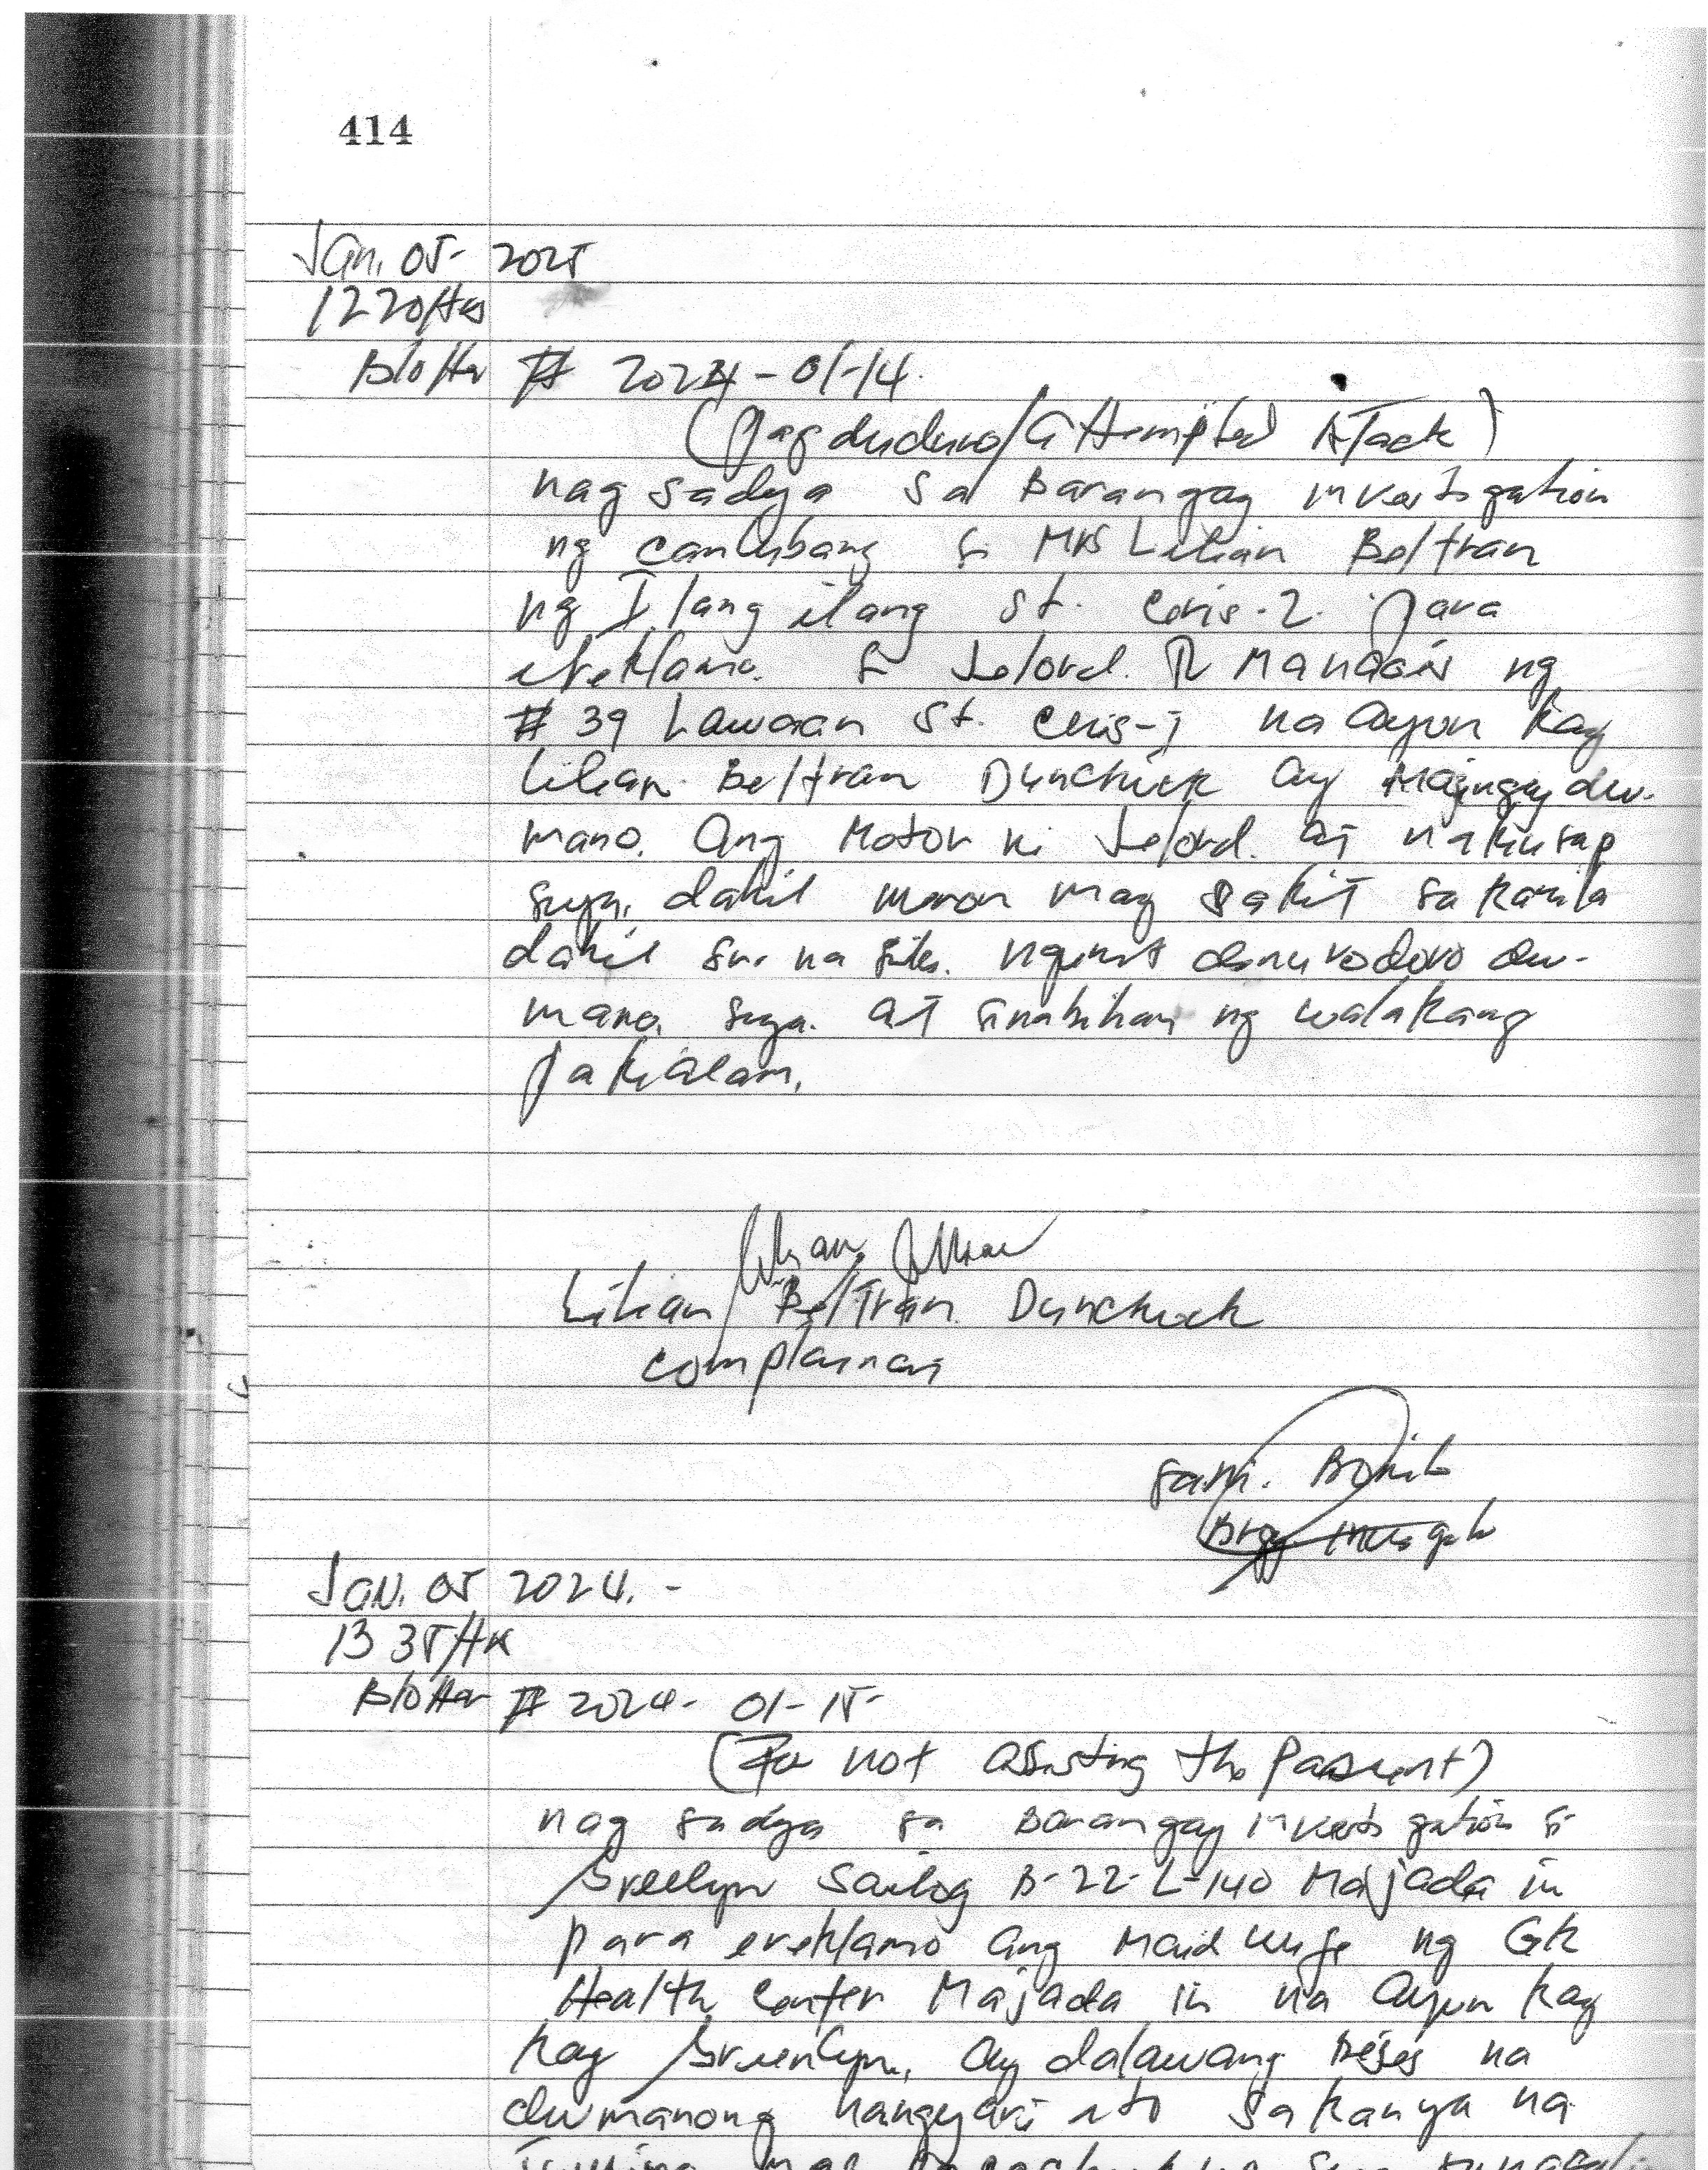 414
Jan. 05- 2025
1220Hrs
Blotter # 2024-01-14.
(Pagduduro/Attempted ATack)
nag sadya sa Barangay investigation
ng canlubang si MRS Lilian Beltran
ng Ilang ilang st. Ceris-2. para
ereklamo. si Jelord. R Mandois ng
# 39 Lawaan st. Ceris-1 na ayon kay
Lilian Beltran Dunchick ay Maingay du-
mano. ang Motor ni Jelord. at nakiusap
sya, dahil meron may sakit sa kanila
dahil na ngunit du-
mano, sya. at sinabihan ng walakang
pakialam.
Lilian Beltran Dunchick
complainan
Brgy
Jan. 05 2024. -
13 35Hrs
Blotter # 2024- 01-15-
(For not assisting the Pasient)
nag sadya sa Barangay investigation si
Sailog B-22-L-140 Majada in
para ereklamo ang Maid wife ng GK
Health Center Majada in na ayon kay
kay ay dalawang beses na
dumanong nangyari ito sa kanya na